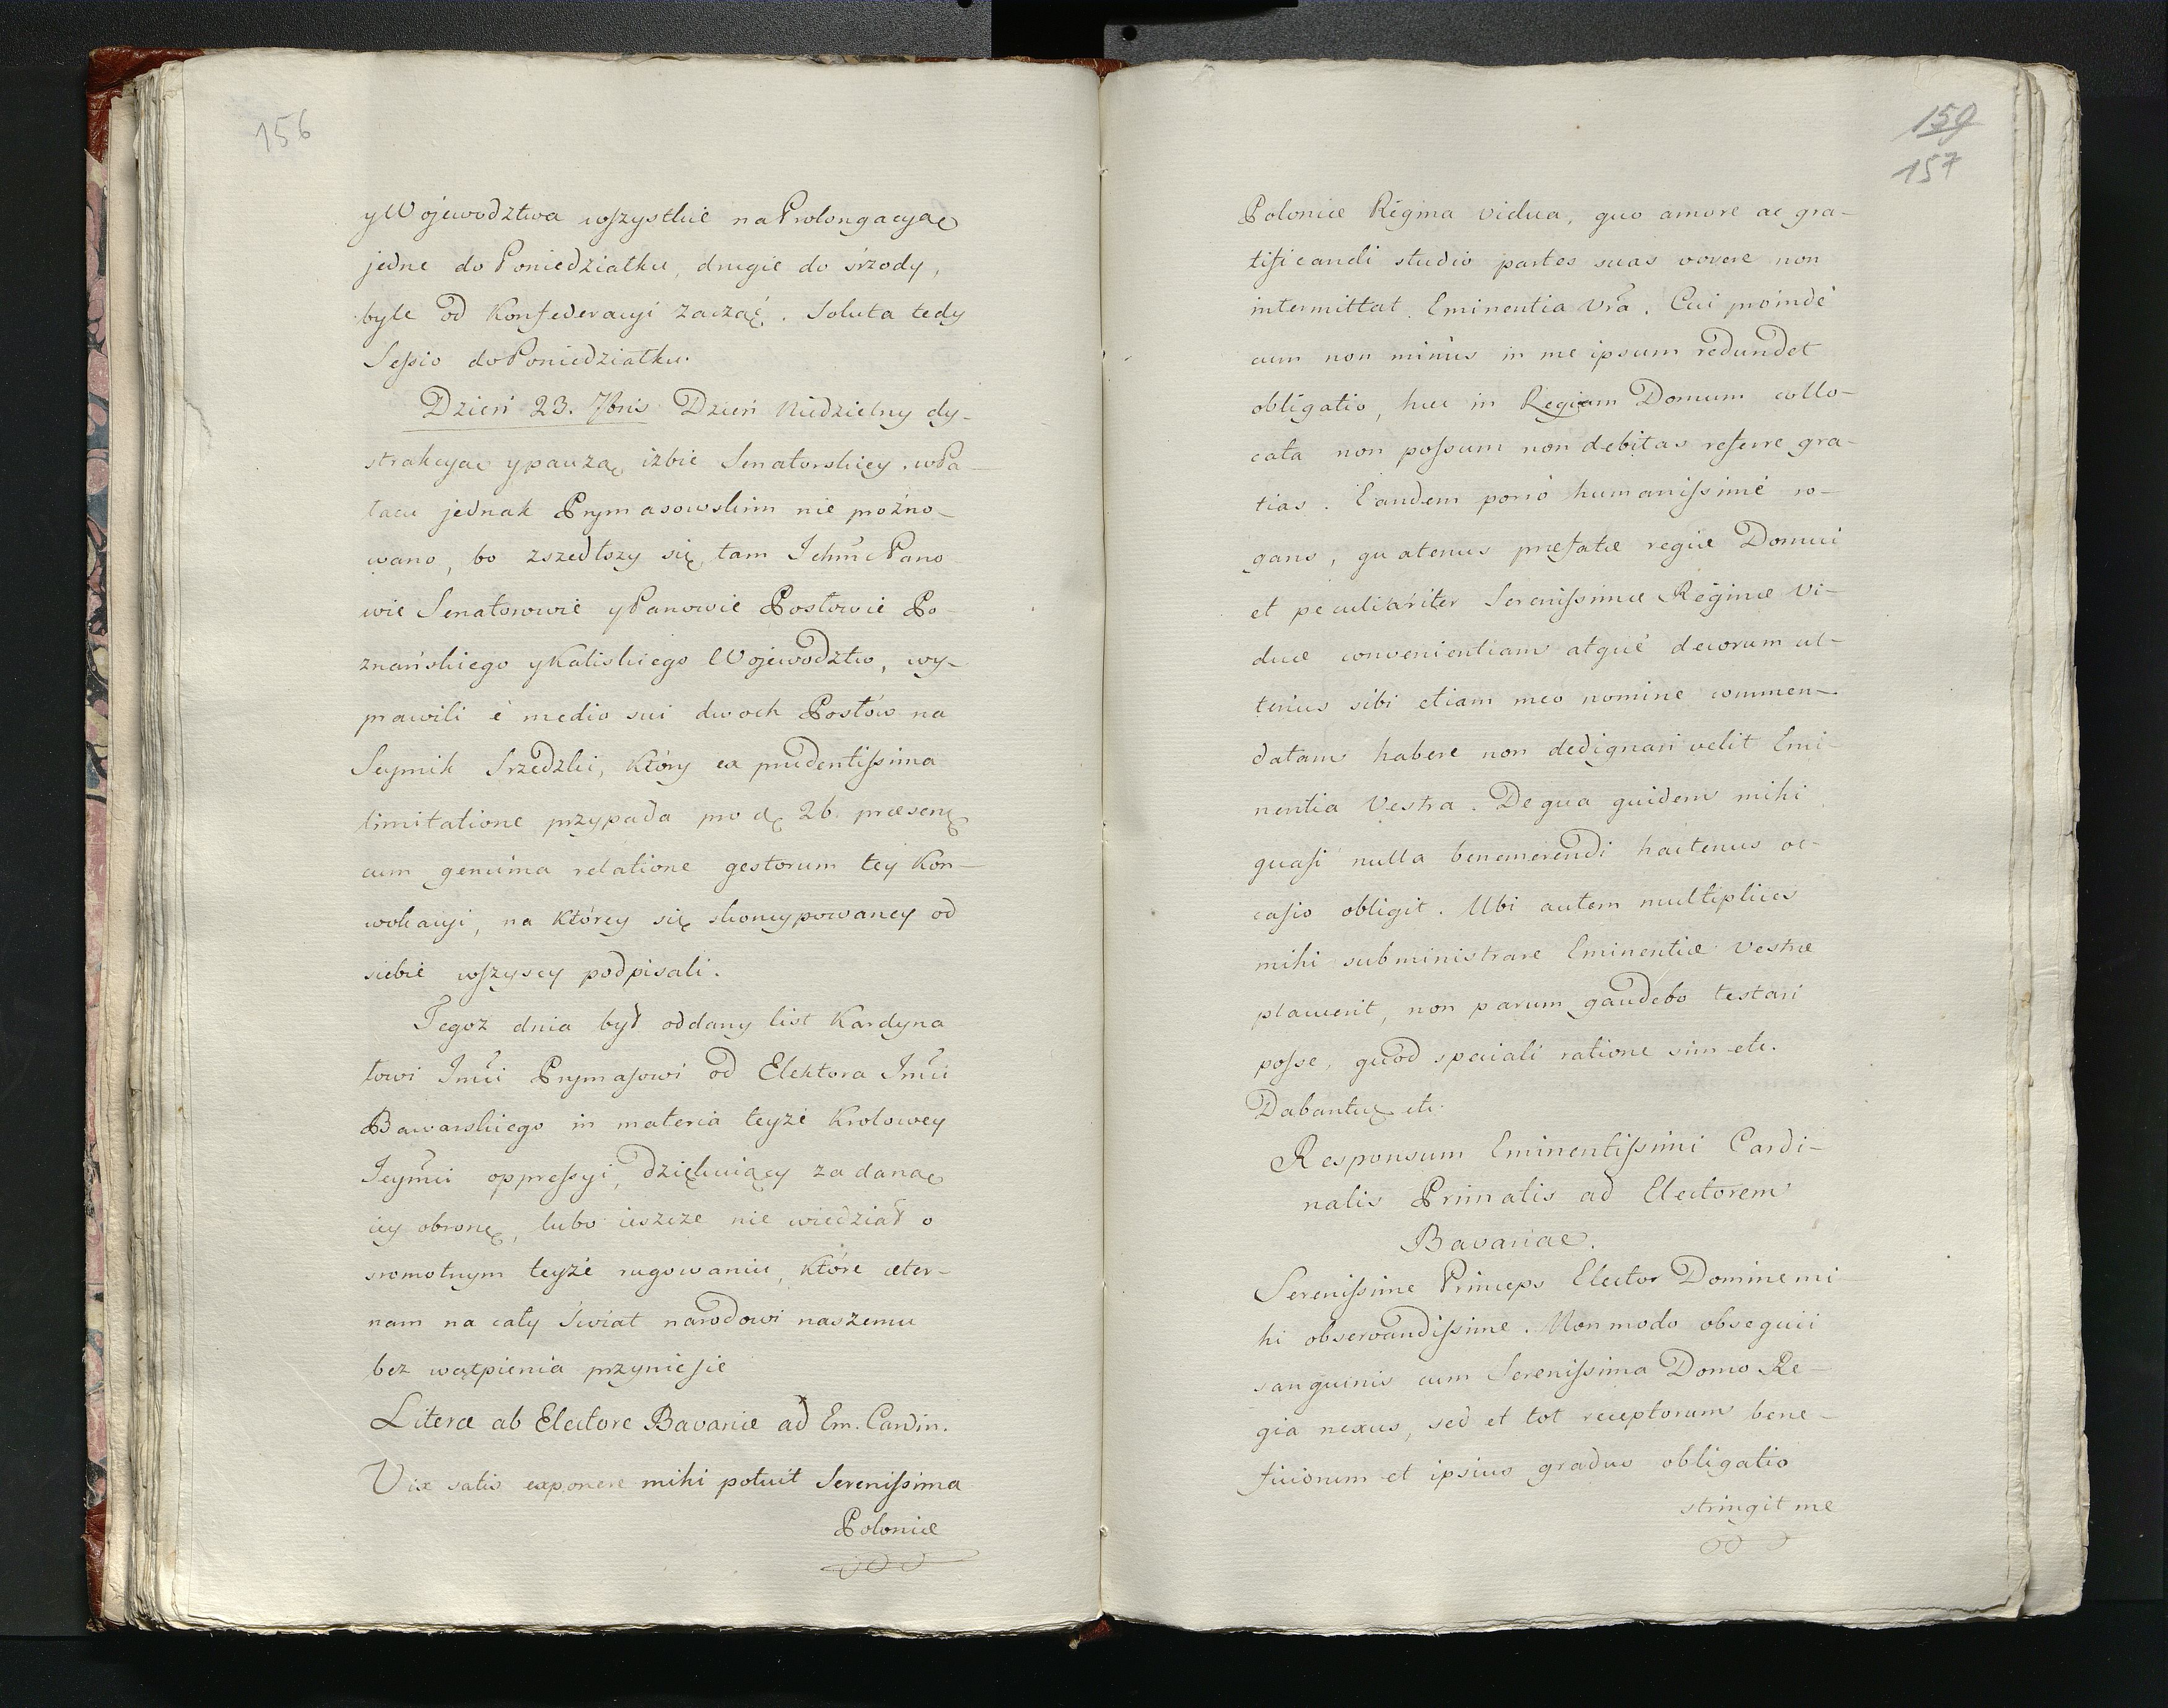 156
y Wojewodztwa wszystkie na Prolongacyą
jedne do Poniedziałku, drugie do śrzody,
byle od Konfederacyi zacząć. Soluta tedy
Sessio do Poniedziałku.
Dzień 23. 7bris Dzień Niedzielny dy-
strakcyą y pauzą izbie Senatorskiey, w Pa-
łacu jednak Prymasowskim nie prożno-
wano, bo zszedłszy się tam Ichmć Pano
wie Senatorowie y Panowie Posłowie Po
znańskiego y Kaliskiego Wojewodztw, wy-
prawili é medio sui dwoch Posłow na
Seymik Srzedzki, który ex prudentissima
limitatione przypada pro d. 26. præsen.
cum genuina relatione gestorum tey Kon-
wokacyi, na którey się skoncypowaney od
siebie wszyscy podpisali.
Tegoż dnia był oddany list Kardyna
łowi Jmći Prymasowi od Elektora Jmći
Bawarskiego in materia teyże Krolowey
Jeymći oppressyi, dziękuiący za daną
iey obronę, lubo ieszcze nie wiedział o
sromotnym teyże rugowaniu, które æter-
nam na cały świat narodowi naszemu
bez wątpienia przyniesie
Literæ ab Electore Bavariæ ad Em. Cardin.
Vix satis exponere mihi potuit Serenissima
Poloniæ
159
157
Poloniæ Regina vidua, quo amore ac gra-
tificandi studio partes suas vovere non
intermittat Eminentia Vra. Cui proinde
cum non minùs in me ipsum redundet
obligatio, huc in Regiam Domum collo-
cata non possum non debitas referre gra-
tias. Eandem porrò humanissimè ro-
gans, quatenus præfatæ regiæ Domui
et peculiariter Serenissimæ Reginæ vi-
duæ convenientiam atquè decorum ul-
terius sibi etiam meo nomine commen-
datam habere non dedignari velit Emi-
nentia Vestra. De qua quidem mihi
quasi nulla benemerendi hactenus oc-
casio obligit. Ubi autem multiplices
mihi subministrare Eminentiæ Vestræ
placuerit, non parum gaudebo testari
posse, quod speciali ratione sim etc.
Dabantur etc.
Responsum Eminentissimi Cardi-
nalis Primatis ad Electorem
Bavariae.
Serenissime Princeps Elector Domine mi-
hi observandissime. Non modo obsequii
sanguinis cum Serenissima Domo Re-
gia nexus, sed et tot receptorum bene-
ficiorum et ipsius gradus obligatio
stringit me